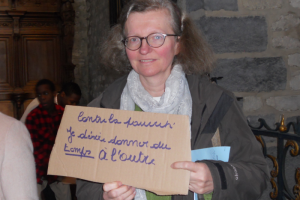 Contre la pauvreté
je désire donner du
temps à l'autre